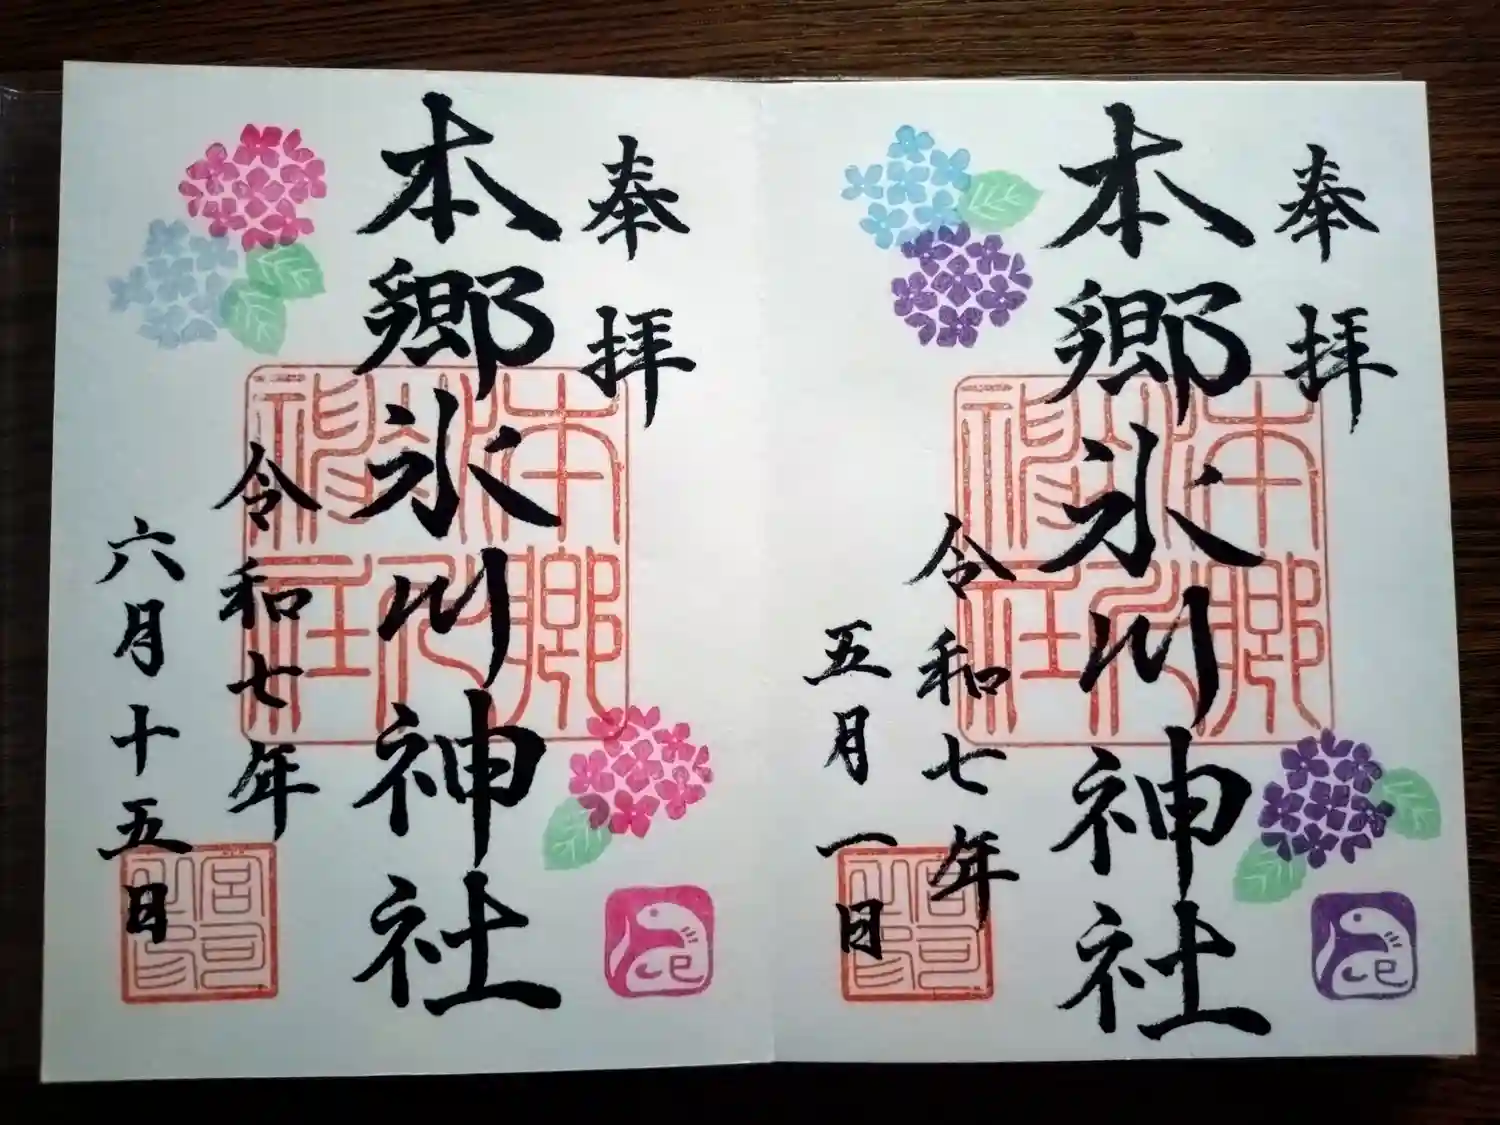 奉拝
本郷氷川神社
令和七年
五月一日
本郷氷川神社
巳
奉拝
本郷氷川神社
令和七年
六月十五日
本郷氷川神社
巳